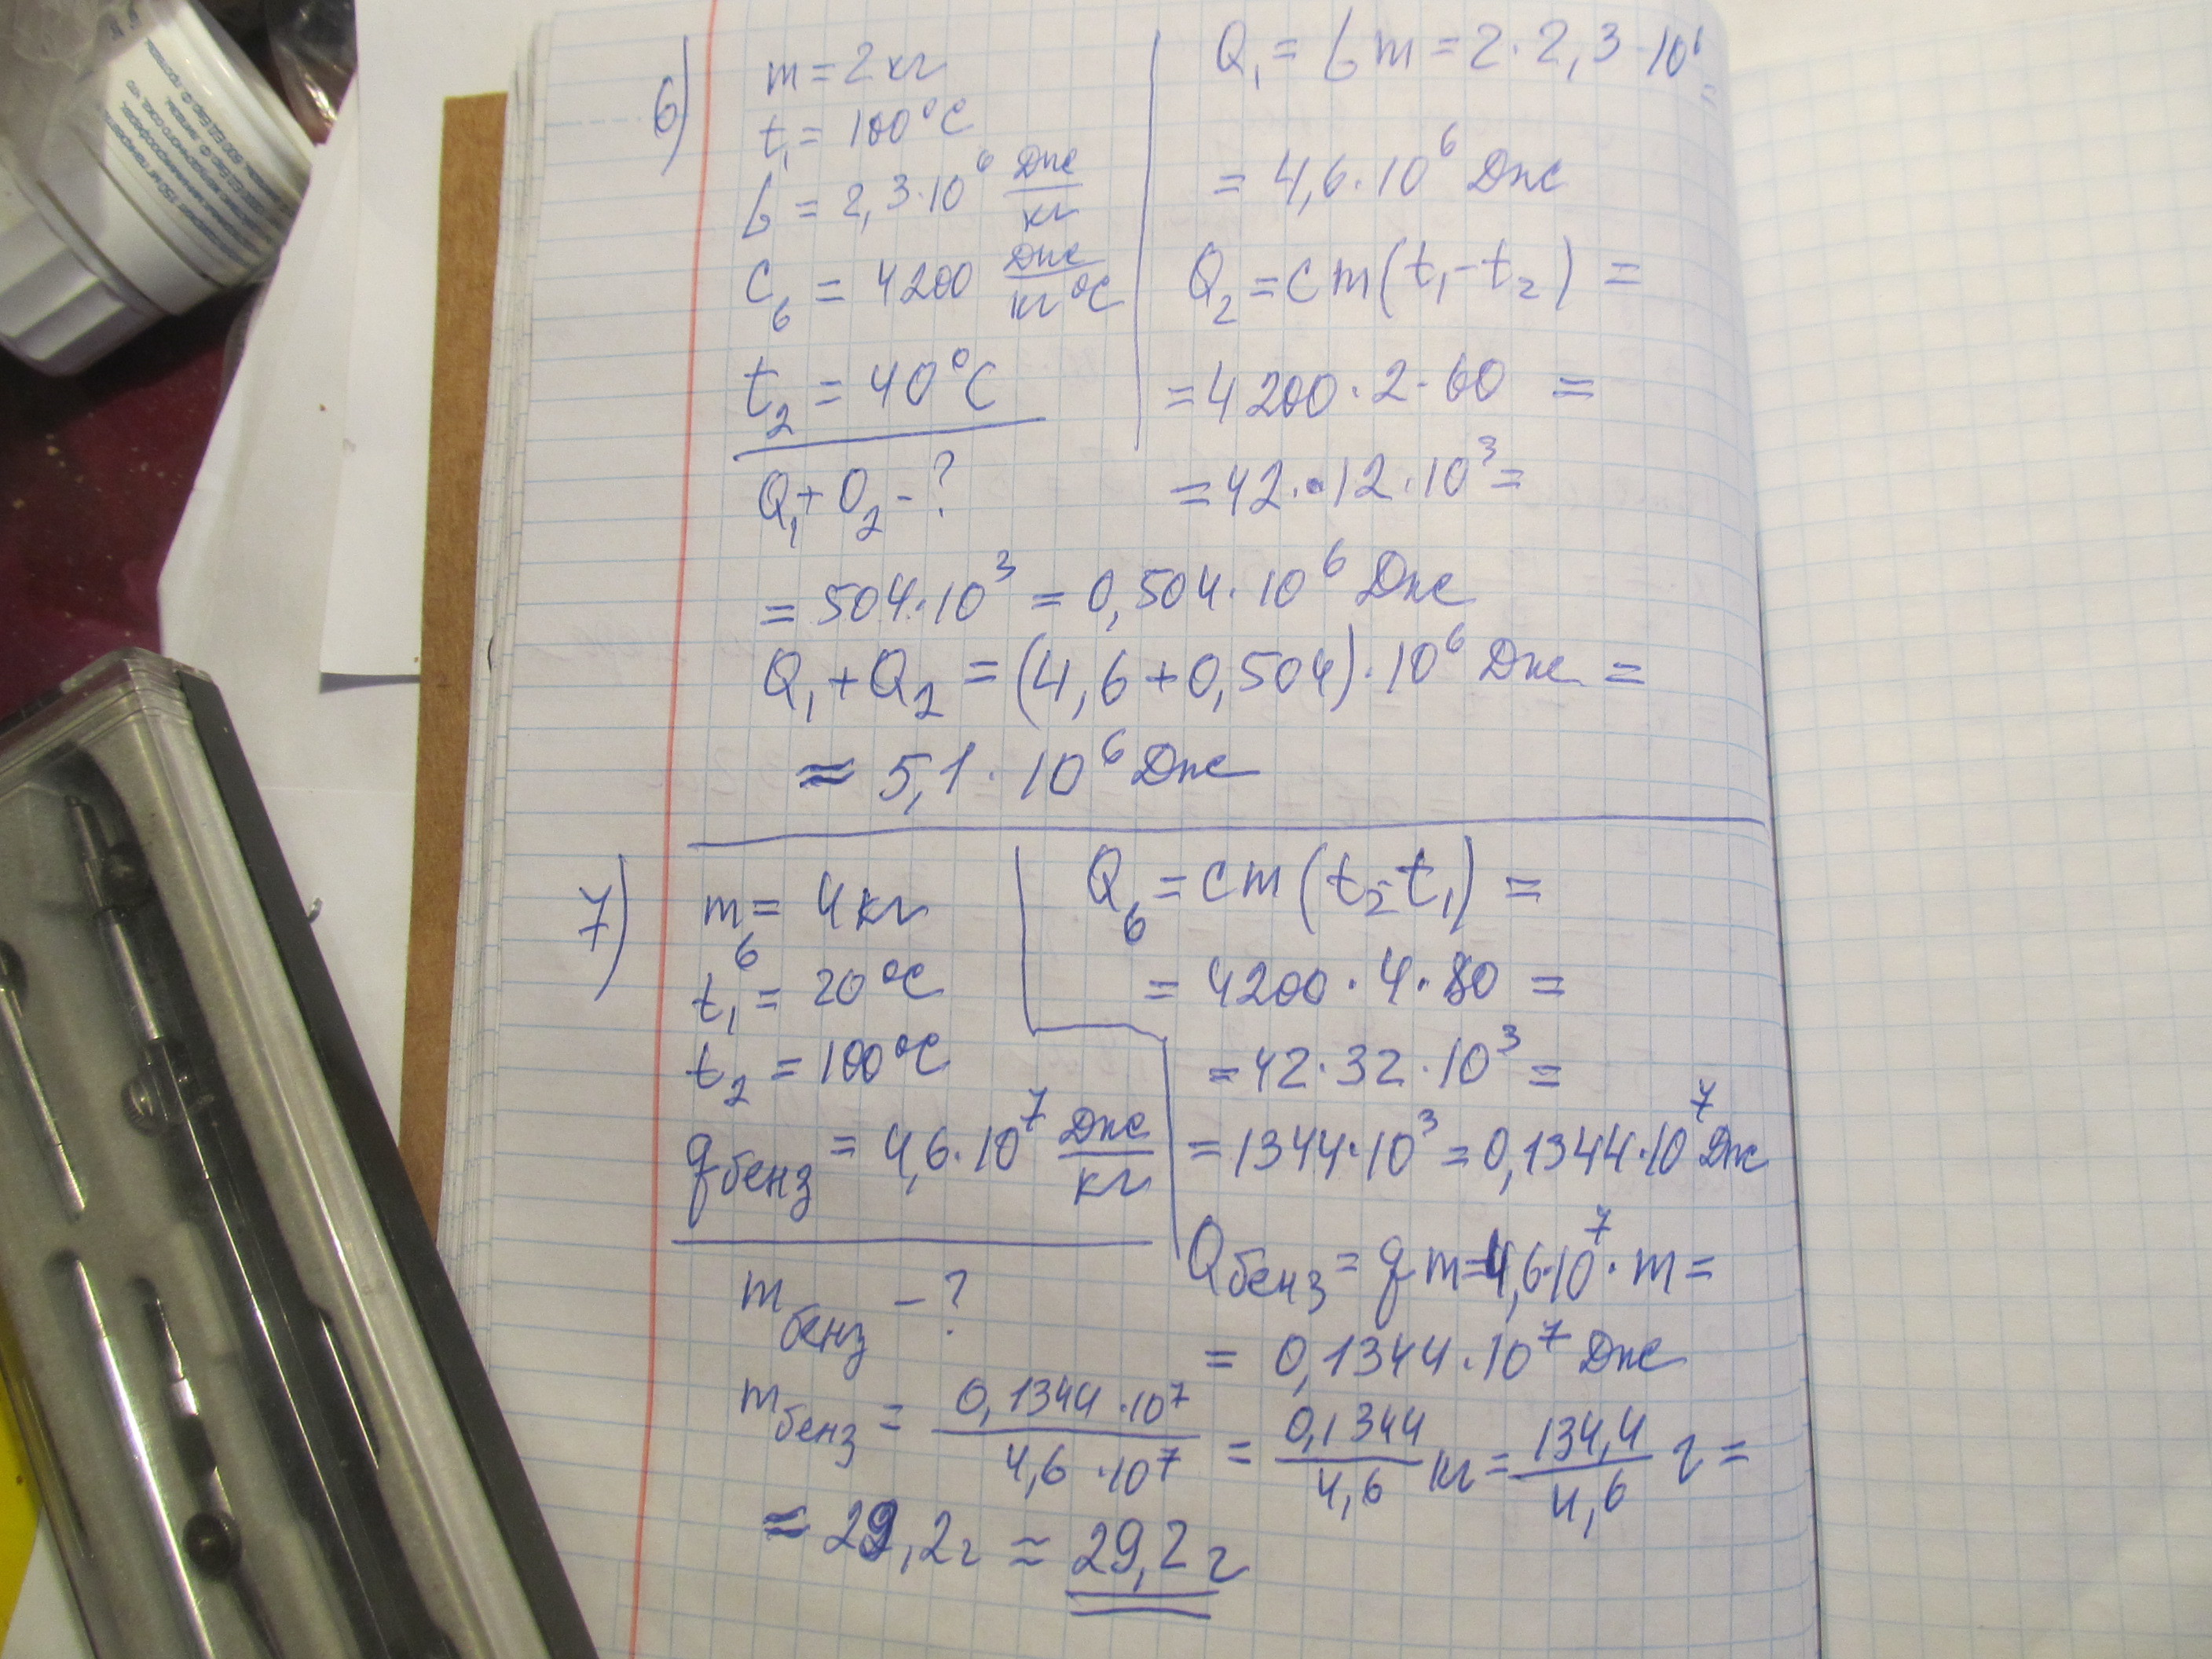 6)
m = 2 кг
t₁ = 100°C
L = 2,3·10⁶ Дж/кг
C_в = 4200 Дж/кг°C
t₂ = 40°C
Q₁+Q₂ - ?
Q₁ = Lm = 2·2,3·10⁶ =
= 4,6·10⁶ Дж
Q₂ = cm(t₁-t₂) =
= 4200·2·60 =
= 42·12·10³ =
= 504·10³ = 0,504·10⁶ Дж
Q₁+Q₂ = (4,6+0,504)·10⁶ Дж =
≈ 5,1·10⁶ Дж
7)
m_в = 4 кг
t₁ = 20°C
t₂ = 100°C
q_бенз = 4,6·10⁷ Дж/кг
m_бенз - ?
Q_в = cm(t₂-t₁) =
= 4200·4·80 =
= 42·32·10³ =
= 1344·10³ = 0,1344·10⁷ Дж
Q_бенз = qm = 4,6·10⁷·m =
= 0,1344·10⁷ Дж
m_бенз = 0,1344·10⁷/4,6·10⁷ = 0,1344/4,6 кг = 134,4/4,6 г =
≈ 29,2г ≈ 29,2 г